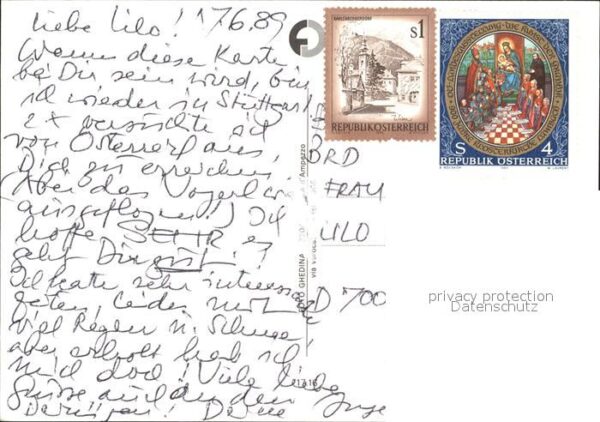 Liebe Lilo! 17.6.89
Wenn diese Karte
bei Dir sein wird, bin
ich wieder in Stuttgart
2x versuchte ich
von Österreich aus,
Dich zu erreichen
(Aber das Vogerl war
ausgeflogen!) Ich
hoffe SEHR es
geht Dir gut!
Ich hatte sehr interess
leider mit
viel Regen u. Schnee
aber erholt hab ich
mich doch! Viele liebe
Grüsse auch an den
Deine Inge
S1
REPUBLIK ÖSTERREICH
REPUBLIK ÖSTERREICH
S 4
GHEDINA
d'Ampezzo
via
BRD
FRAU
LILO
D 700
privacy protection
Datenschutz